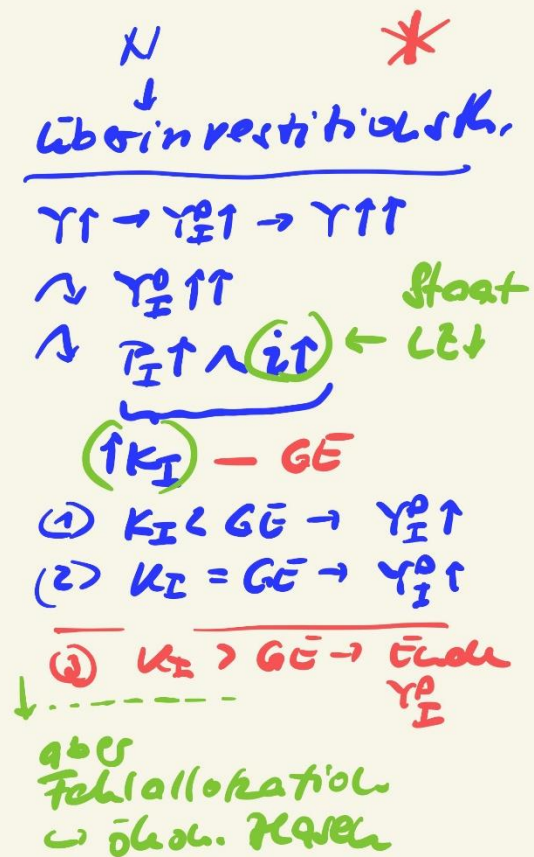 N *
↓
Überinvestitionsth.
Y↑ → Y_I^D↑ → Y↑↑
↷ Y_I^D↑↑ Staat
↷ P_I↑ ∧ i↑ ← LE↓
↑K_I — GE
(1) K_I < GE → Y_I^D↑
(2) K_I = GE → Y_I^D↑
(3) K_I > GE → Ende
Y_I^D
↓
aber
Fehlallokation
↪ ökon.